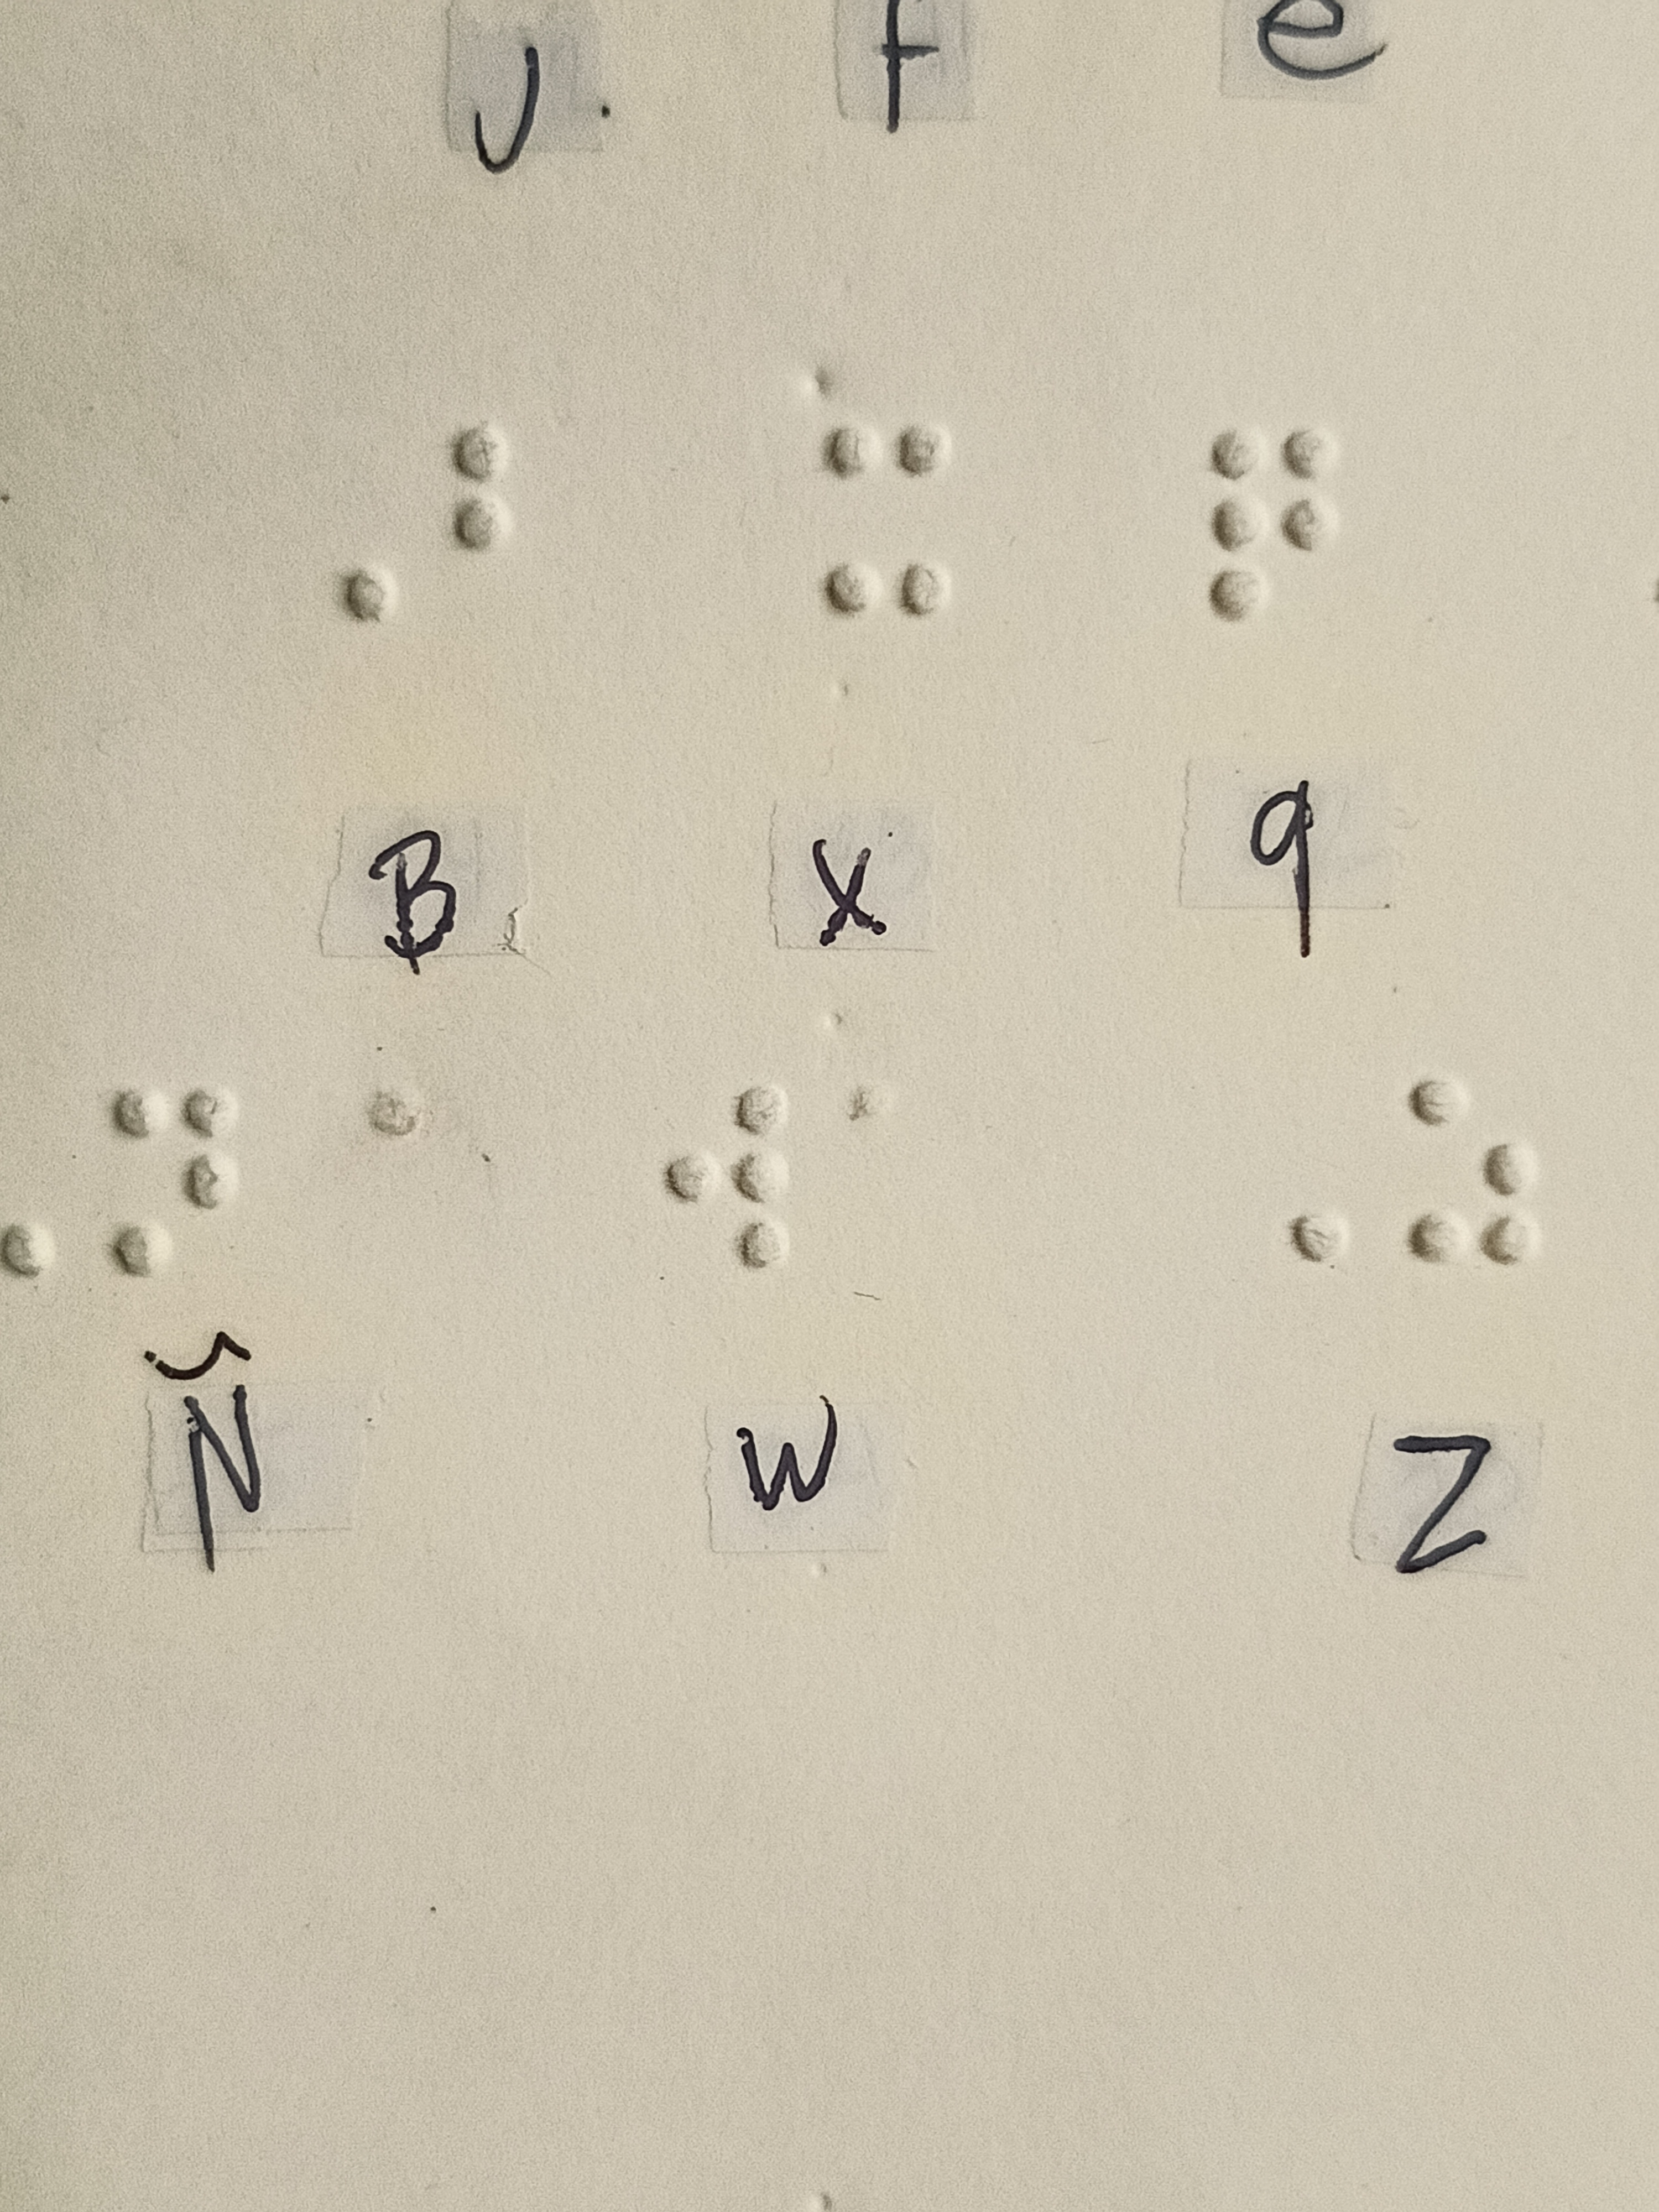 J f e
B X q
Ñ W Z